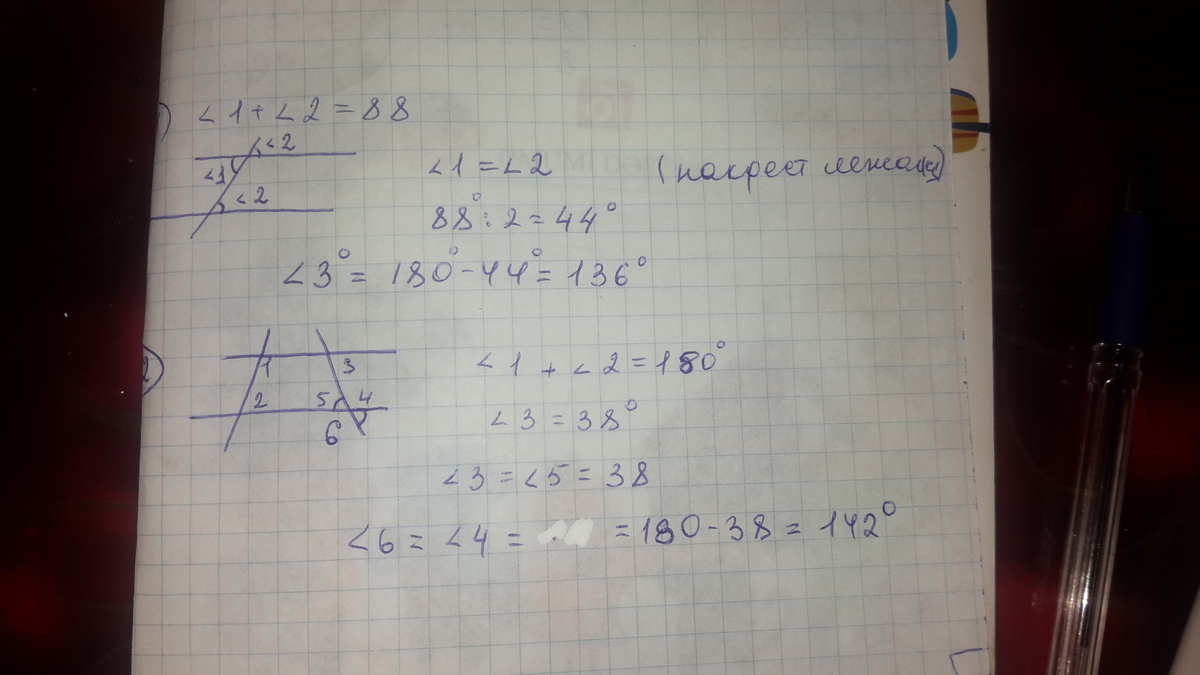 1) ∠1 + ∠2 = 88
∠2
∠1
∠2
∠1 = ∠2 (накрест лежащие)
88° : 2 = 44°
∠3° = 180° - 44° = 136°
2)
1 3
2 5 4
6
∠1 + ∠2 = 180°
∠3 = 38°
∠3 = ∠5 = 38
∠6 = ∠4 = = 180 - 38 = 142°